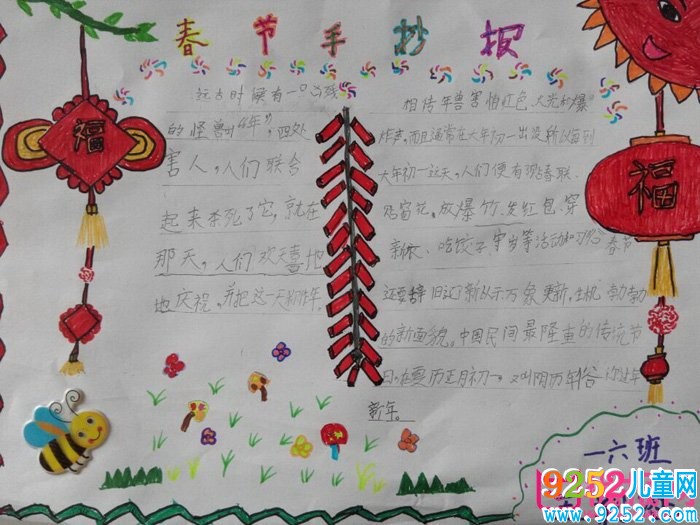 春节手抄报
福
远古时候有一只凶残
的怪兽叫“年”，四处
害人，人们联合
起来杀死了它，就在
那天，人们欢天喜地
地庆祝，并把这一天称作年
相传年兽害怕红色、火光和爆
炸声，而且通常在大年初一出没，所以每到
大年初一这天，人们便有了贴春联、
贴窗花、放爆竹、发红包、穿
新衣、吃饺子、守岁等活动和习俗 春节
还要辞旧迎新从示万象更新，生机勃勃
的新面貌。中国民间最隆重的传统节
日，在夏历正月初一，又叫阴历年，俗
新年。
福
一六班
9252儿童网
www.9252.com